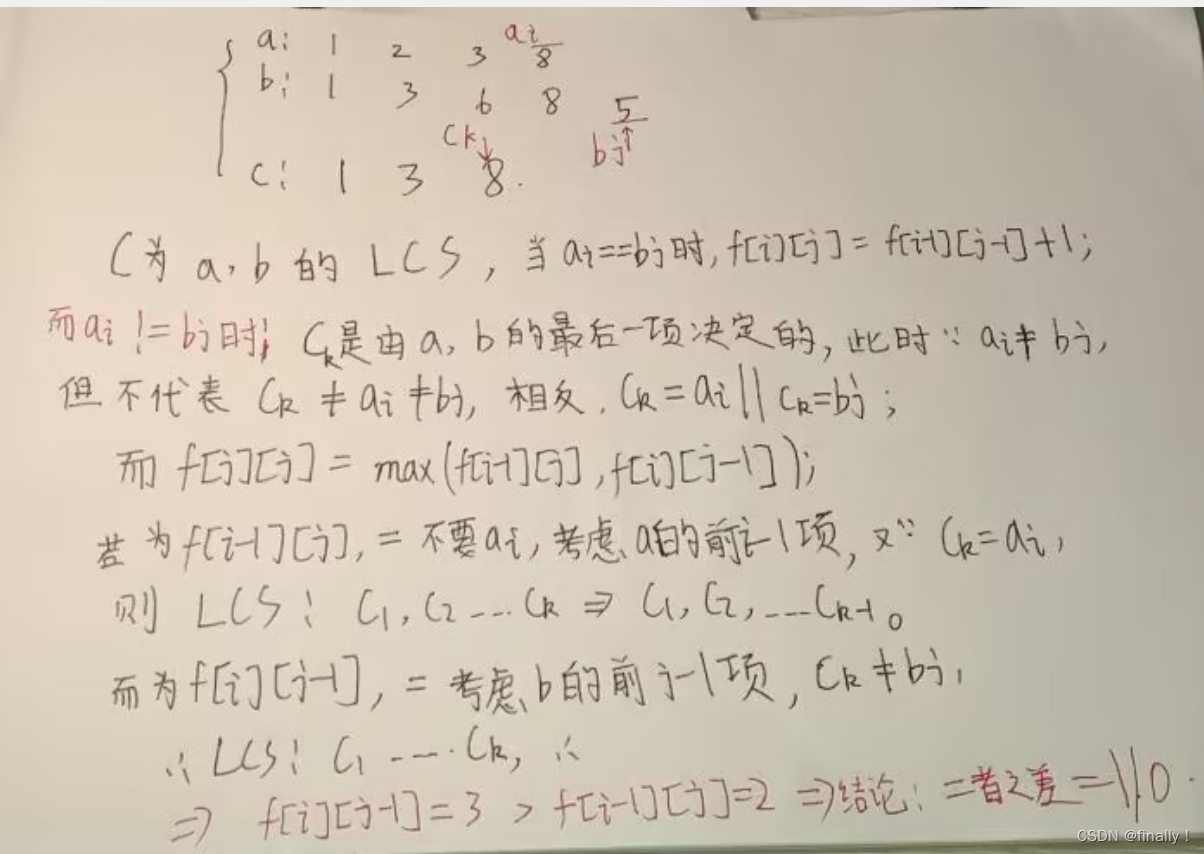 a: 1 2 3 8 ai
b: 1 3 6 8 5
ck bj
c: 1 3 8.
C为a,b的LCS,当ai==bj时,f[i][j]=f[i-1][j-1]+1;
而ai!=bj时; Ck是由a,b的最后一项决定的,此时∵ai≠bj,
但不代表Ck≠ai≠bj,相反,Ck=ai||Ck=bj;
而f[j][j]=max(f[i-1][j],f[i][j-1]);
若为f[i-1][j],=不要ai,考虑a的前i-1项,又∵Ck=ai,
则LCS:C1,C2...Ck⇒C1,C2,...Ck-1。
而为f[i][j-1],=考虑b的前j-1项,Ck≠bj,
∴LCS:C1....Ck,∴
⇒f[i][j-1]=3>f[i-1][j]=2⇒结论:二者之差=1||0.
CSDN @finally!